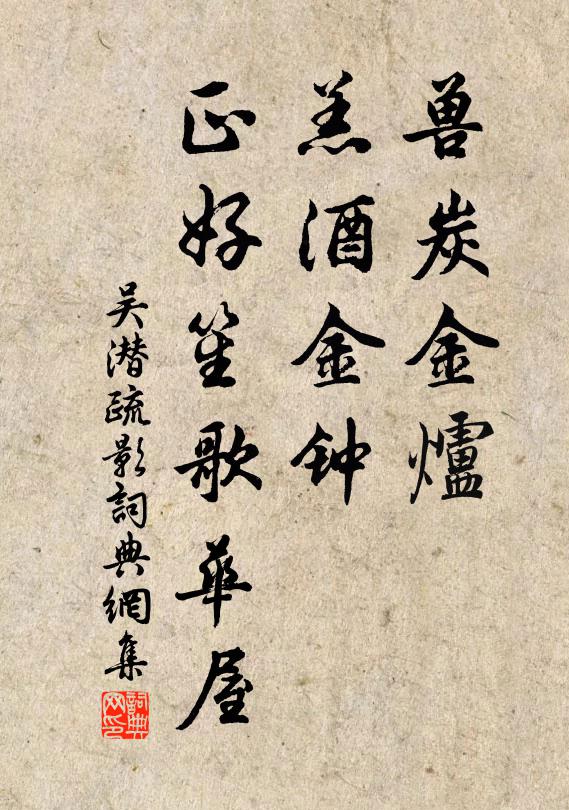 兽炭金爐
羔酒金钟
正好笙歌華屋
吴潜疏影詞典網集
詞典网印